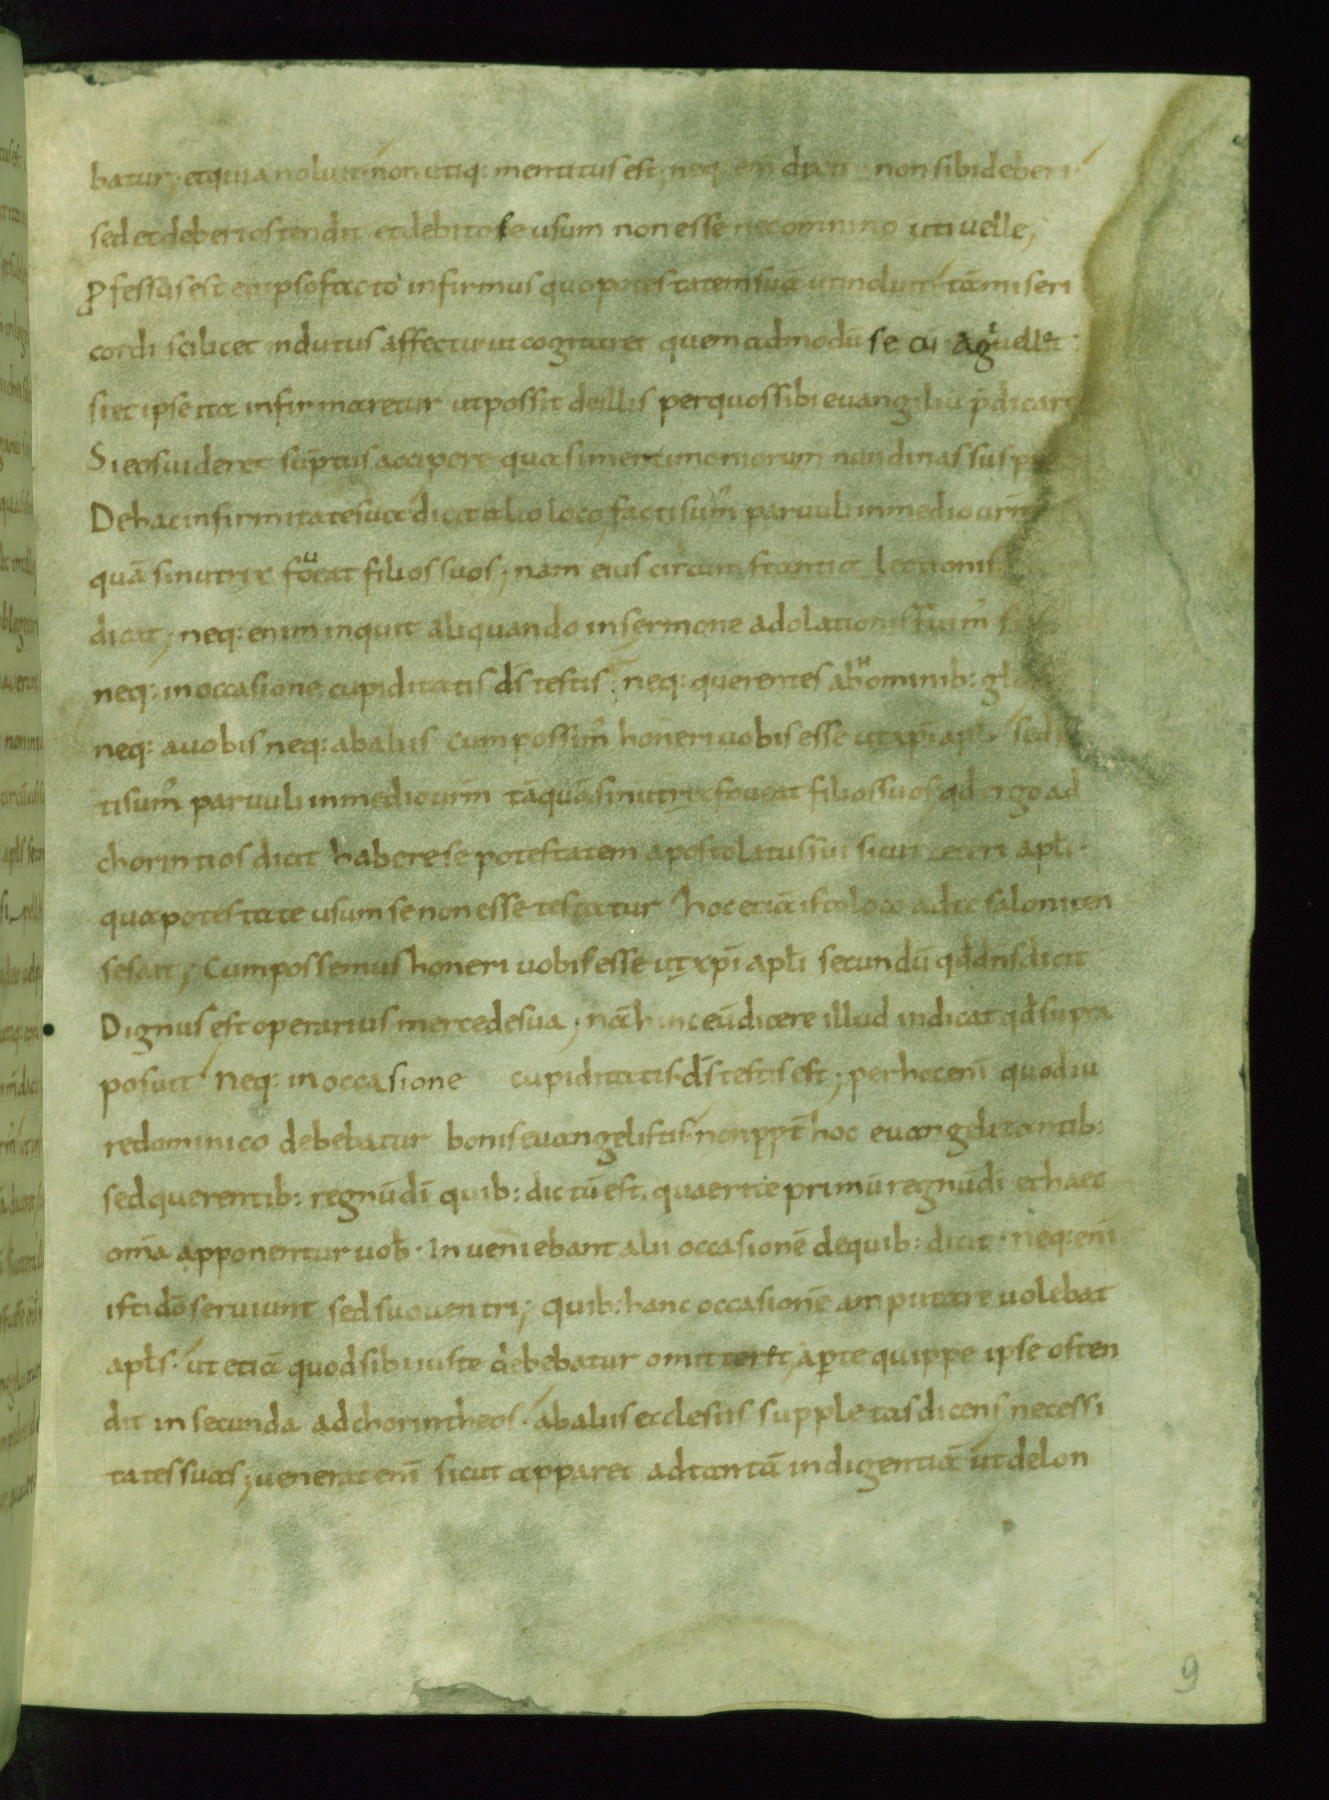 batur; et quia noluit non utiq: mentitus est; neq enī dixit non sibi deberi
sed et deberi ostendit et debito se usum non esse nec omnino uti uelle;
Pfessus est eo ipso facto infirmus quo potestatem suā uti noluit tā miseri
cordi scilicet indutus affectu ut cogitaret quem admodū se cū agr uellet
si et ipse ita infirmaretur ut possit de illis per quos sibi euangeliū p̄dicare
Si eos uideret sūptus accipere quasi mentimoniorum nundinas
De hac infirmitate sua dicit alio loco facti sum̄ paruuli in medio
quā si nutrix foueat filios suos; nam eius circumstantia lectionis
dicit; neq: enim inquit aliquando in sermone adolationis fuim̄
neq: in occasione cupiditatis dś testis neq: querentes ab hominib:
neq: a uobis neq: ab aliis cum possim̄ honeri uobis esse ut xp̄i apli sed
ti sum̄ paruuli in medio urm̄ tāquā si nutrix foueat filios suos qd ergo ad
chorintios dicit habere se potestatem apostolatus sui sicut ceteri apli
qua potestate usum se non esse testatur hoc etiā isto loco ad tesaloniten
ses ait; Cum possemus honeri uobis esse ut xp̄i apli secundū qd dn̄s dicit
Dignus est operarius mercede sua; nā hinc eū dicere illud indicat qd supra
posuit neq: in occasione cupiditatis dś testis est; per hoc enī quod iu
re dominico debebatur bonis euangelistis non ppt̄ hoc euangelizantib:
sed querentib: regnū dī quib: dictū est, quaerite primū regnū dī et haec
omīa apponentur uob̄ · Inueniebant alii occasionē de quib: dicit · neq: enī
isti dō seruiunt sed suo uentri; quib: hanc occasionē amputare uolebat
apl̄s · ut etiā quod sibi iuste debebatur omitteret, apte quippe ipse osten
dit in secunda ad chorintheos · ab aliis ecclesiis suppletas dicens necessi
tates suas; uenerat enī sicut apparet ad tantā indigentiā ut de lon
9